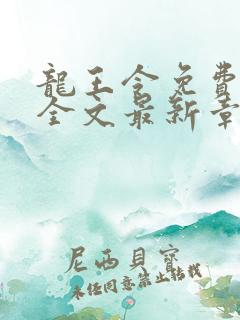 龍王令免費
全文最新章
尼西貝寶
未经同意禁止转载